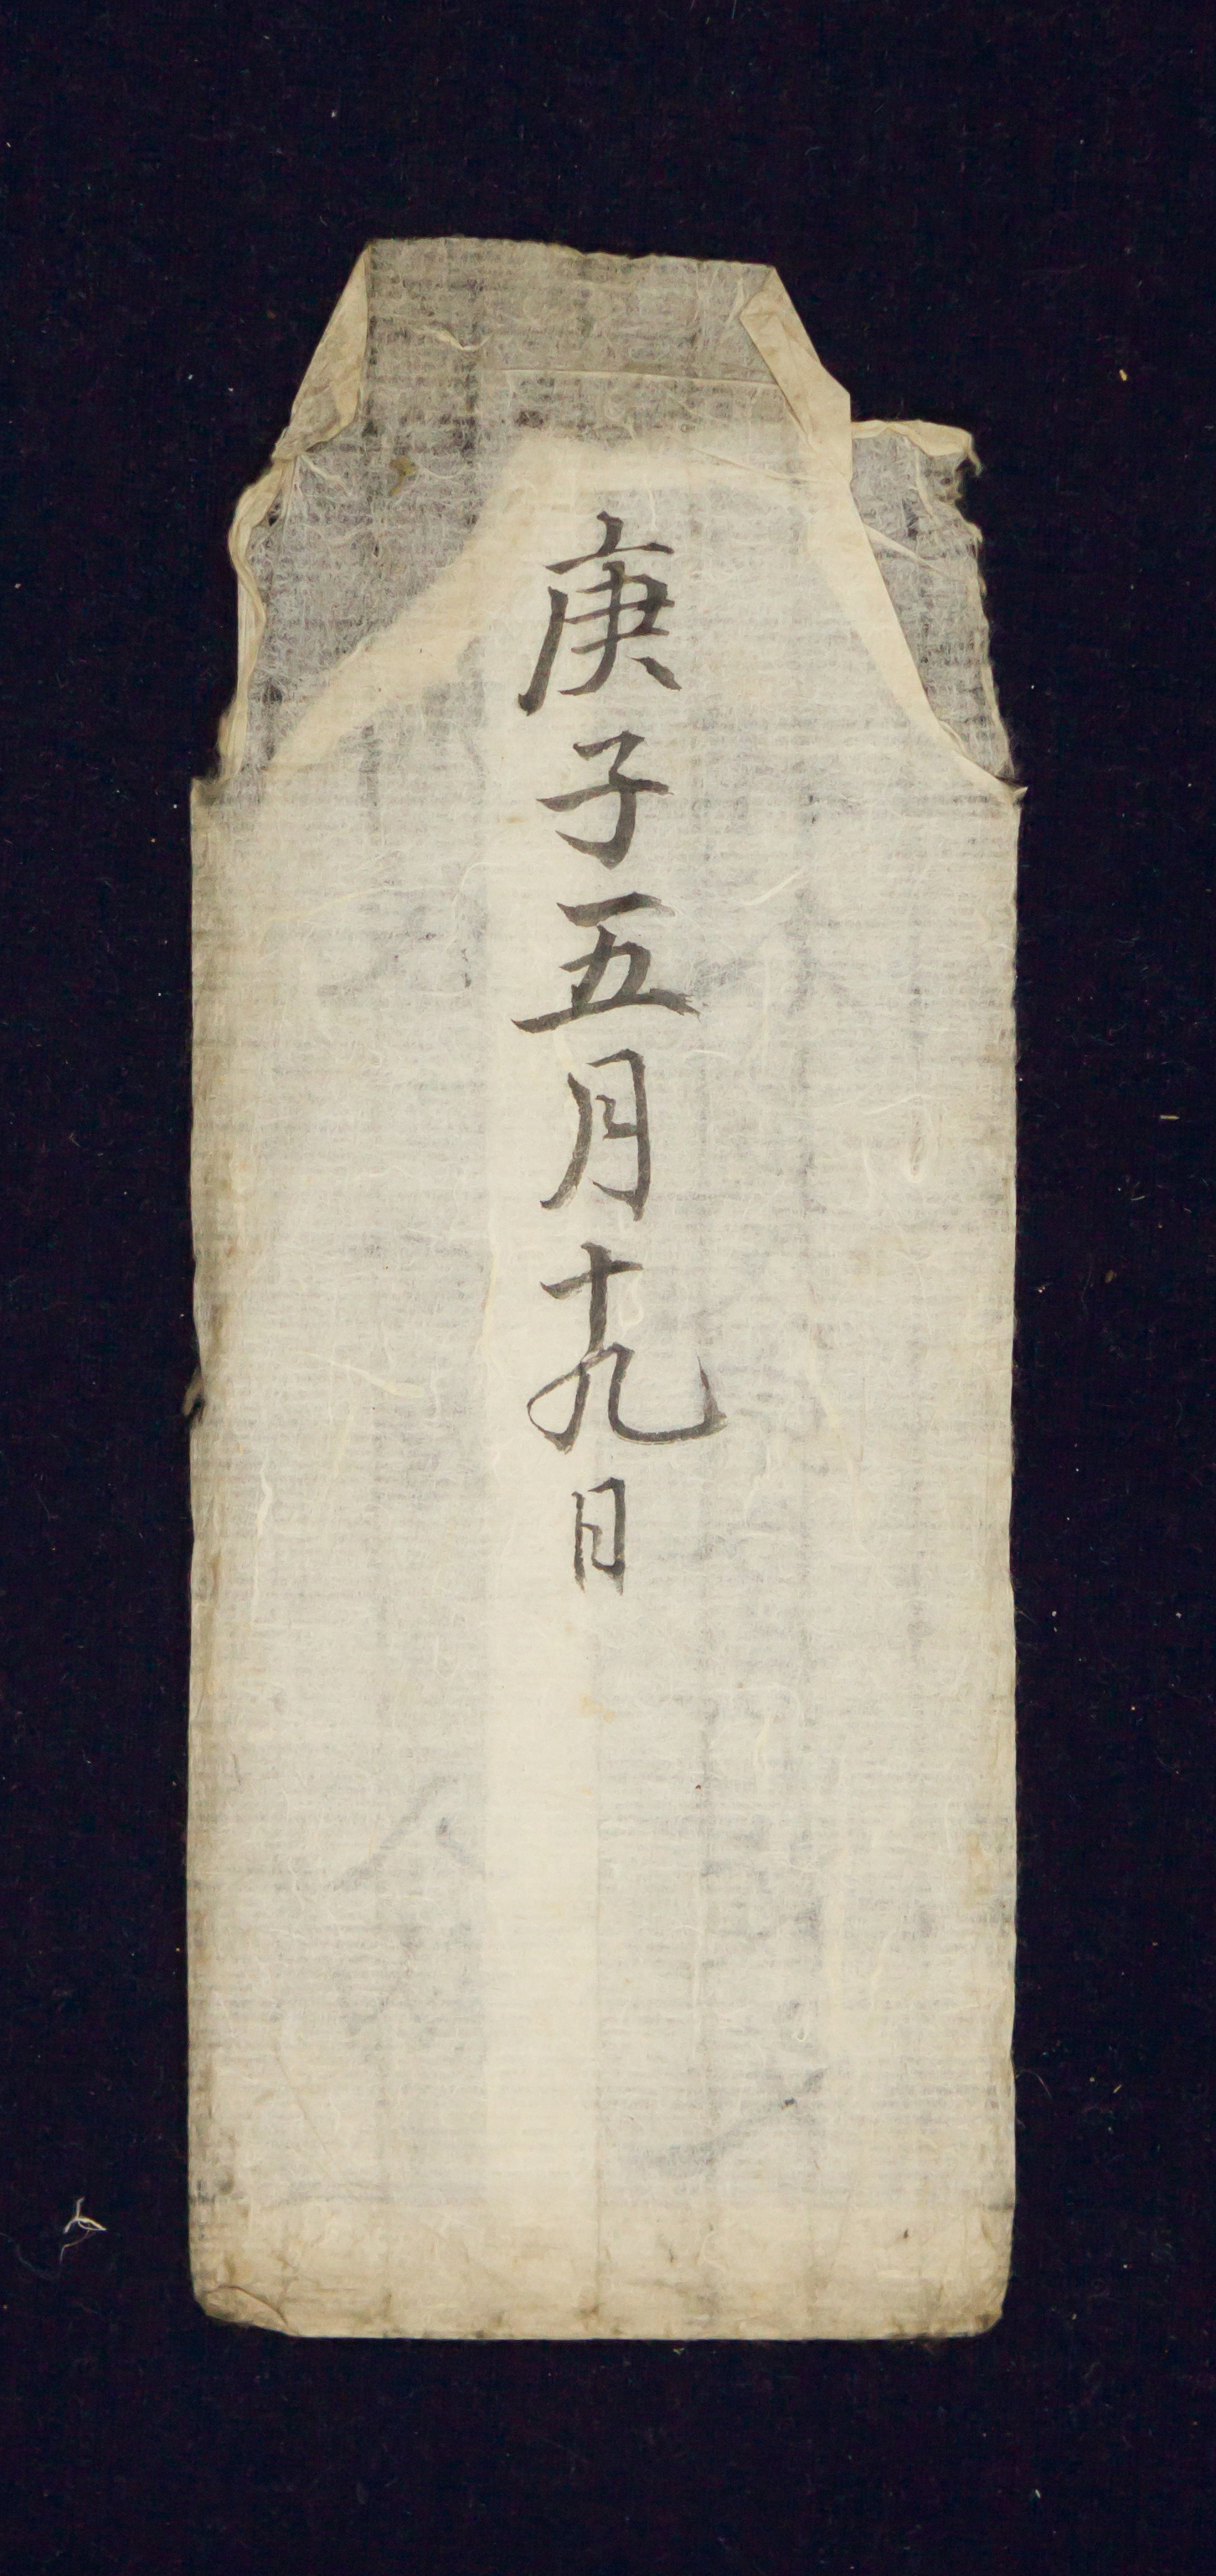 庚子五月十九日